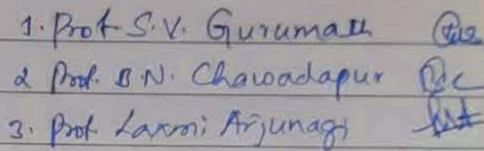 1. Prof S.V. Gurumath
2 Prof. B.N. Chawadapur
3. Prof Laxmi Arjunagi